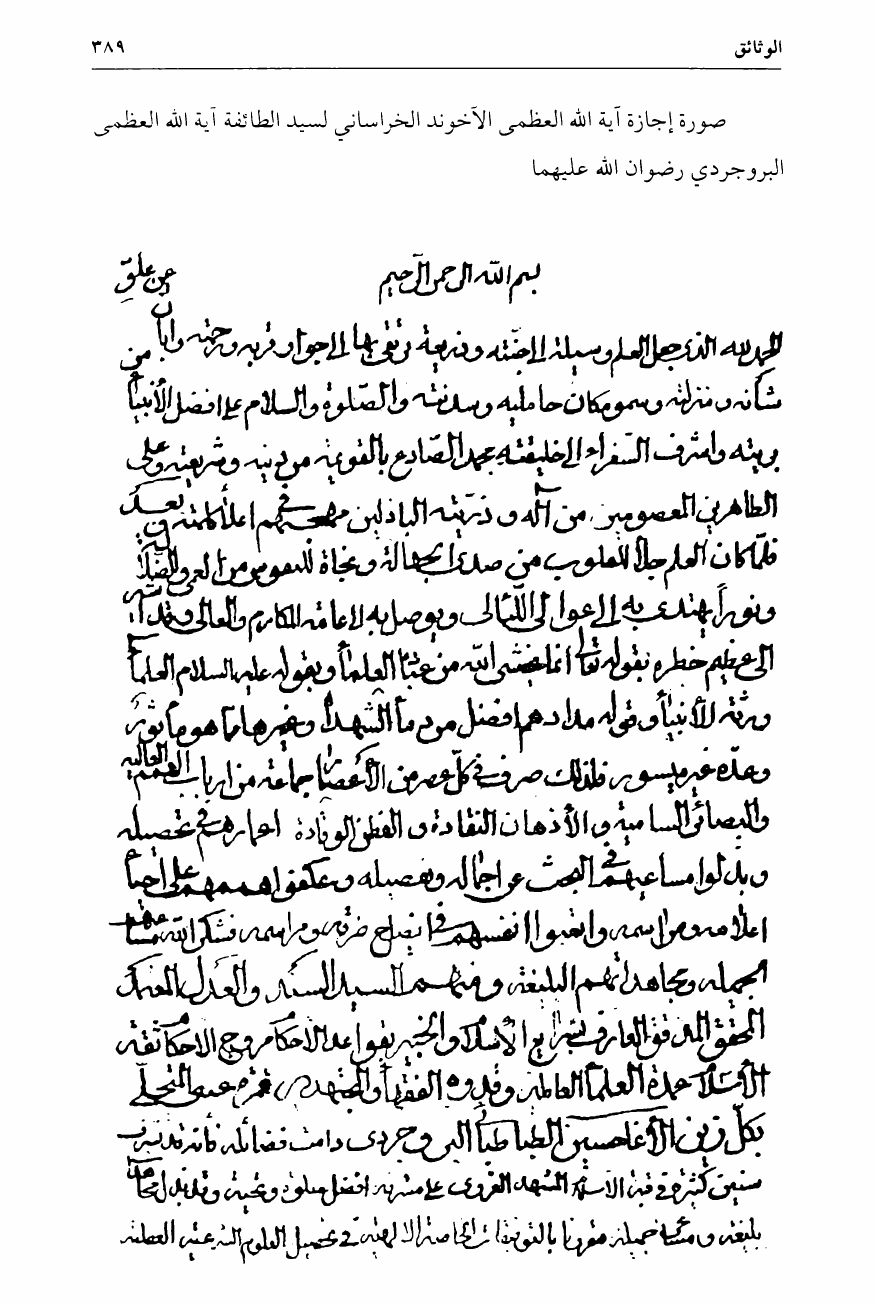 الوثائق ٣٨٩
صورة إجازة آية الله العظمى الآخوند الخراساني لسيد الطائفة آية الله العظمى
البروجردي رضوان الله عليهما
بسم الله الرحمن الرحيم
الحمد لله الذي جعل العلم وسيلة الى جنته وذريعة يرتقى بها الى جوار قربه ورحمته وابان عن علو
شأنه ومنزلته وسمو مكان حامليه وسدنته والصلوة والسلام على افضل الأنبياء من
بريته واشرف السفراء الى خليقته محمد الصادع بالقويمة من دينه وشريعته وعلى
الطاهرين المعصومين من آله وذريته الباذلين مهجهم في اعلاء كلمته وبعد
فلما كان العلم جلاء للقلوب من صدى الجهالة ونجاة للنفوس من العمى والضلالة
ونورا يهتدى به الى عوالي اللئالى ويوصل به لاعامة المكارم والمعالى وقد
الى عظيم خطره بقوله تعالى انما يخشى الله من عباده العلماء وبقوله عليه السلام العلماء
ورثة الأنبياء وقوله مدادهم افضل من دماء الشهداء وغيرها مما هو مأثور
وعده غير ميسور فلذلك صرف في كل عصر من الأعصار جماعة من ارباب الهمم العالية
والبصائر السامية والأذهان النقادة والفطن الوقادة اعمارهم في تحصيله
وبذلوا مساعيهم في البحث عن اجماله وتفصيله وعكفوا هممهم على احياء
اعلامه ومراسمه واتعبوا انفسهم في ايضاح مراسمه فشكر الله مساعيهم
الجميله ومجاهداتهم البليغة ومنهم السيد السند والعدل
المحقق المدقق العارف بشرايع الأسلام والخبير بقواعد الأحكام مروج الاحكام ثقة
الأسلام عمدة العلماء العاملين وقدوة الفقهاء والمجتهدين المتحلى
بكل زين الأغا حسين الطباطبائي البروجردي دامت فضائله فأنه قد
سنين كثيرة في الغروى على مشرفه افضل صلوة وتحية وقد بذل
بليغة ومساعى جميله مقرونا بالتوفيقات الخاصة الالهية في تحصيل العلوم الشرعية